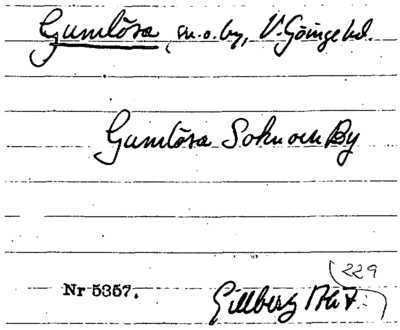 Gumlösa sn. o. by, V. Göinge hd.
Gumlösa Sokn och By
229
Nr 5357.
Gillberg